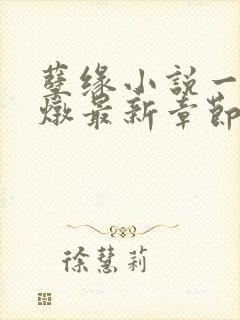 孽缘小説一
燉最新章節
徐慧莉